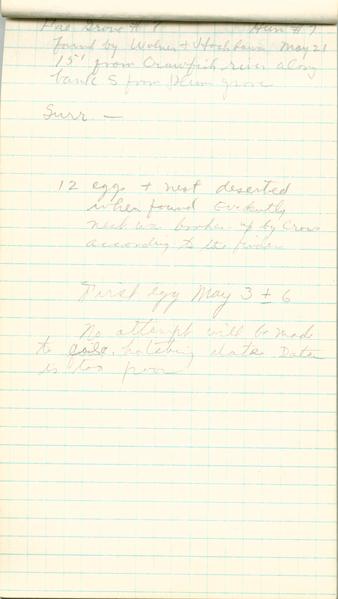 Grove # 7 Hen # 7
found by Wolner + Hochbaum May 21
15' from Crawfish river along
bank S from Plum grove
Surr —
12 eggs + nest deserted
when found Evidently
nest was broken up by Crow
according to the finders
First egg May 3 ± 6
No attempt will be made
to hatching date. Data
is too poor